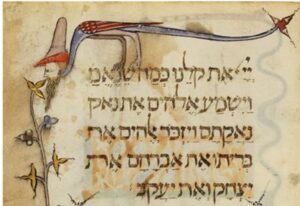 יי את קלנו כמה שנאמ
וישמע אלהים את נאק
נאקתם ויזכר אלהים את
בריתו את אברהם את
יצחק ואת יעקב